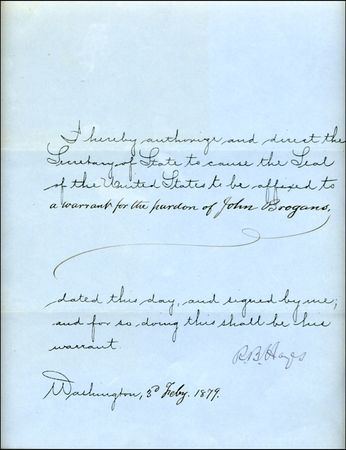 I hereby authorize and direct the
Secretary of State to cause the Seal
of the United States to be affixed to
a warrant for the pardon of John Brogans,
dated this day, and signed by me;
and for so doing this shall be his
warrant.
R. B. Hayes
Washington, 3d Feby. 1879.